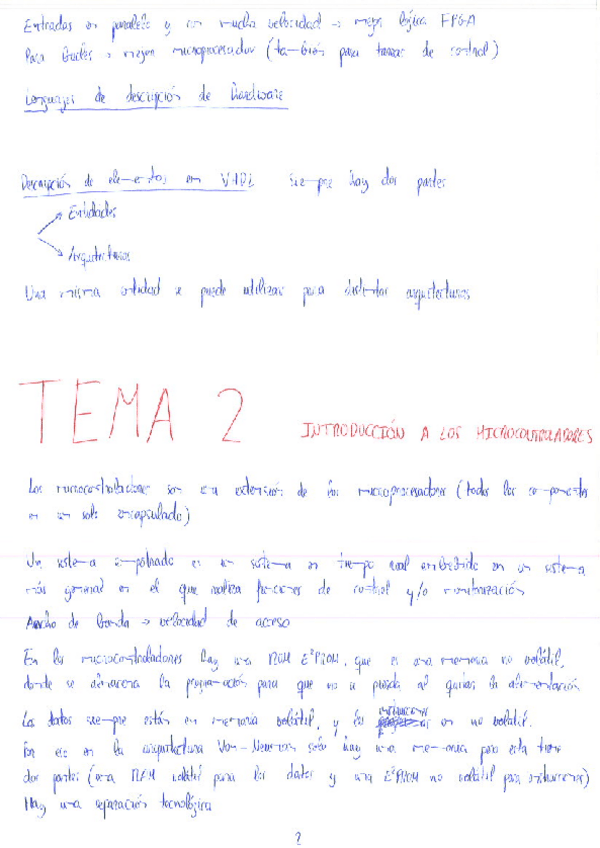 Entradas en paralelo y con mucha velocidad → mejor lógica FPGA
Para bucles → mejor microprocesador (también para tareas de control)
Lenguajes de descripción de Hardware
Descripción de elementos en VHDL siempre hay dos partes
Entidades
Arquitecturas
Una misma entidad se puede utilizar para distintas arquitecturas
TEMA 2 INTRODUCCIÓN A LOS MICROCONTROLADORES
Los microcontroladores son una extensión de los microprocesadores (todos los componentes
en un solo encapsulado)
Un sistema empotrado es un sistema en tiempo real embebido en un sistema
más general en el que realiza funciones de control y/o monitorización
Ancho de banda → velocidad de acceso
En los microcontroladores hay una ROM E²PROM, que es una memoria no volátil,
donde se almacena la programación para que no se pierda al quitar la alimentación
Los datos siempre están en memoria volátil, y las instrucciones en no volátil.
Por eso en la arquitectura Von-Neumann solo hay una memoria pero esta tiene
dos partes (una RAM volátil para los datos y una E²PROM no volátil para instrucciones)
Hay una separación tecnológica
2